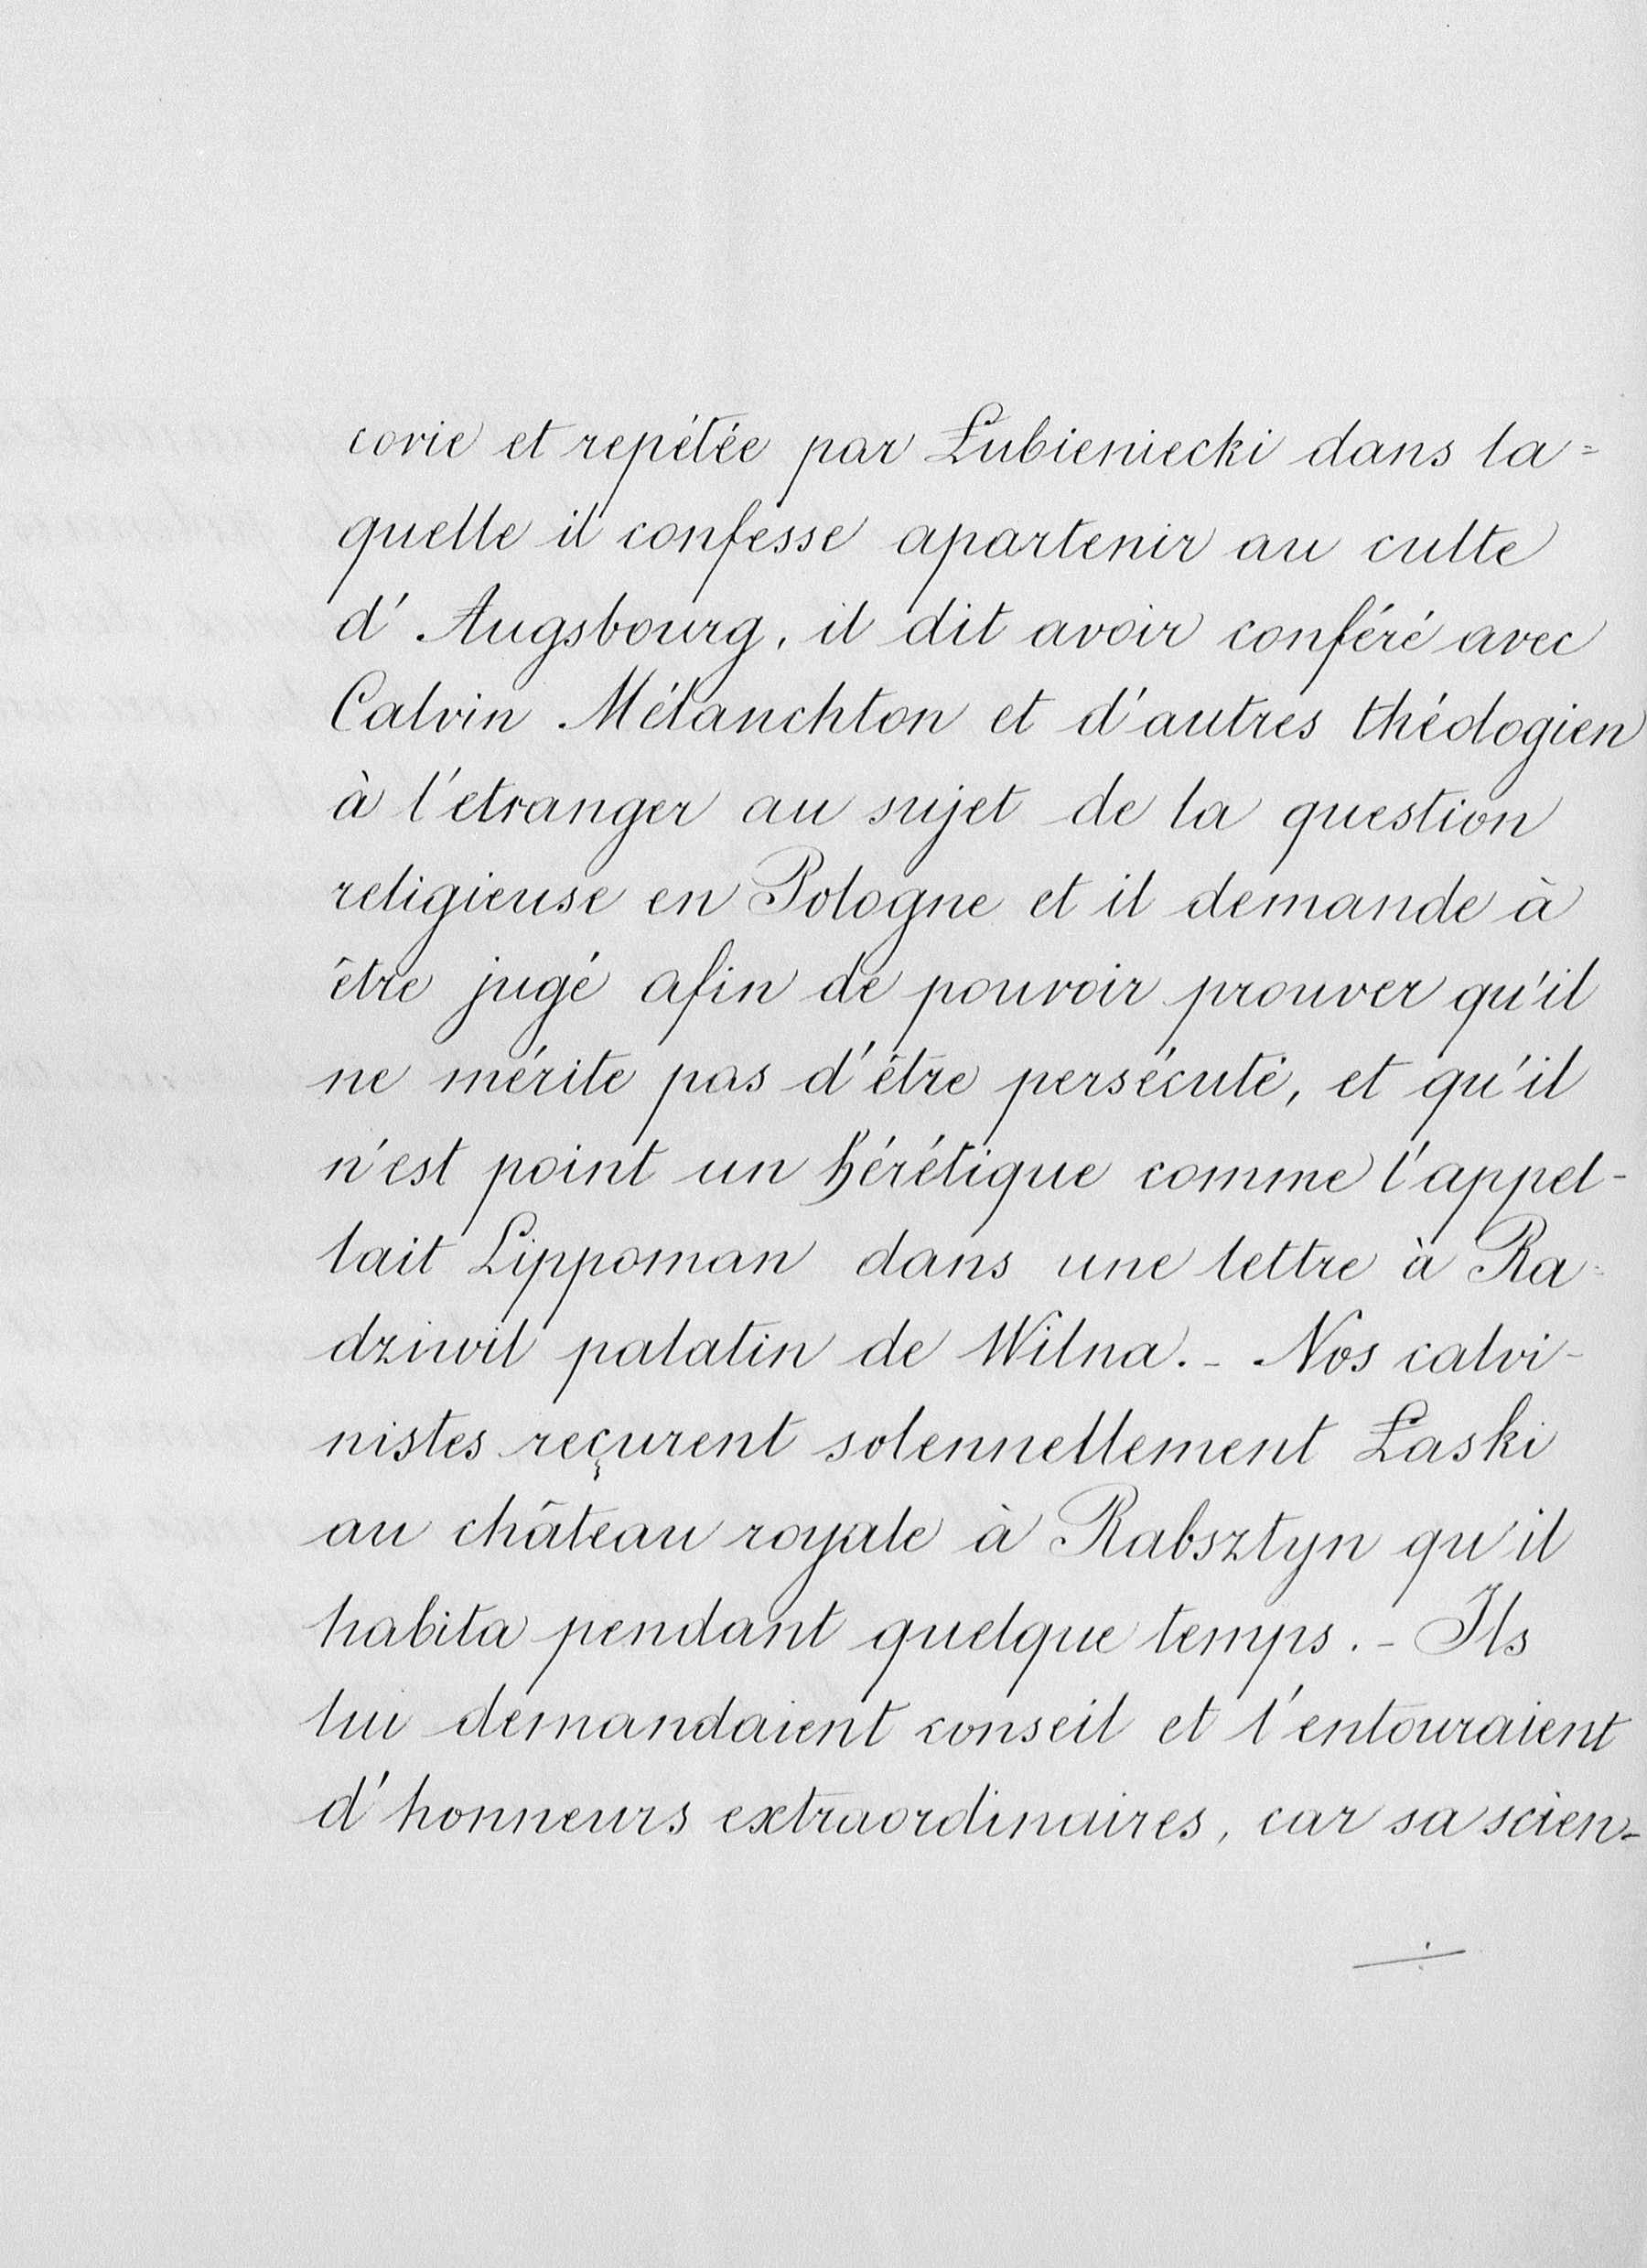 covie et repétée par Łubieniecki dans la=
quelle il confesse apartenir au culte
d'Augsbourg, il dit avoir conféré avec
Calvin Mélanchton et d'autres théologien
à l'etranger au sujet de la question
religieuse en Pologne et il demande à
être jugé afin de pouvoir prouver qu'il
ne mérite pas d'être persécuté, et qu'il
n'est point un hérétique comme l'appel-
lait Lippoman dans une lettre à Ra=
dziwil palatin de Wilna. - Nos calvi-
nistes reçurent solennellement Łaski
au château royale à Rabsztyn qu'il
habita pendant quelque temps. - Ils
lui demandaient conseil et l'entouraient
d'honneurs extraordinaires, car sa scien-